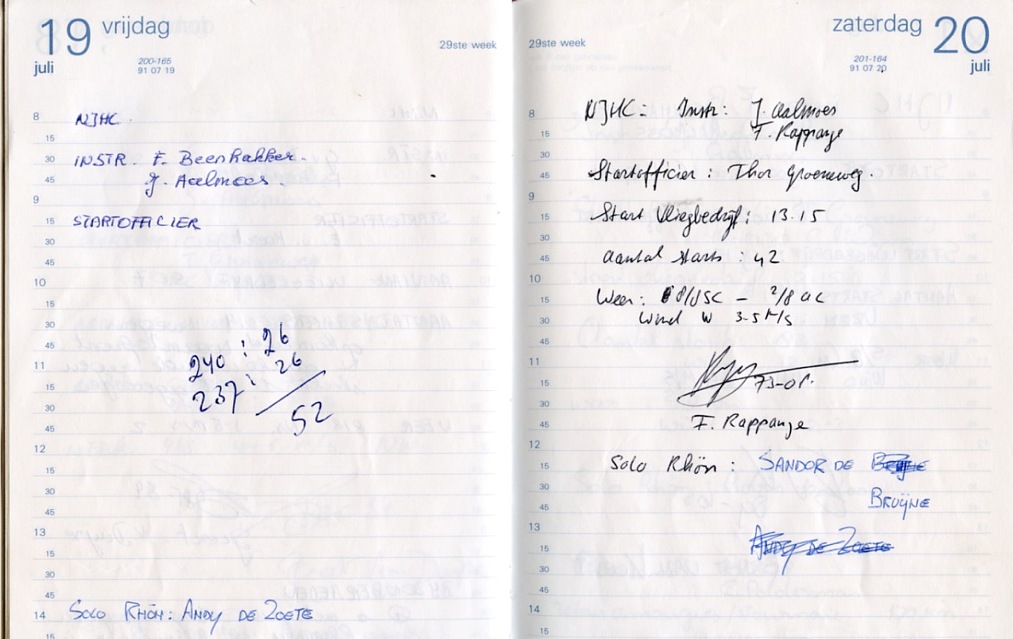 19 vrijdag
juli
200-165
91 07 19
29ste week
8
NJHC
15
30
INSTR. F. Beenhakker.
45
J. Aalmoes.
9
15
STARTOFFICIER
30
45
10
15
30
45
240 : 26
11
237 : 26
15
52
30
45
12
15
30
45
13
15
30
45
14
SOLO RHÖN: ANDY DE ZOETE
15
zaterdag 20
juli
29ste week
201-164
91 07 20
8
NJHC: Instr: J. Aalmoes
15
F. Rappange
30
45
Startofficier : Thor Groeneweg.
9
15
Start Vliegbedrijf: 13.15
30
45
Aantal starts : 42
10
15
Weer: 8/8 SC - 2/8 ac
30
Wind W 3-5 M/s
45
11
15
73-01.
30
45
F. Rappange
12
15
Solo Rhön : SANDOR DE
30
BRUŸNE
45
13
15
ANDY DE ZOETE
30
45
14
15